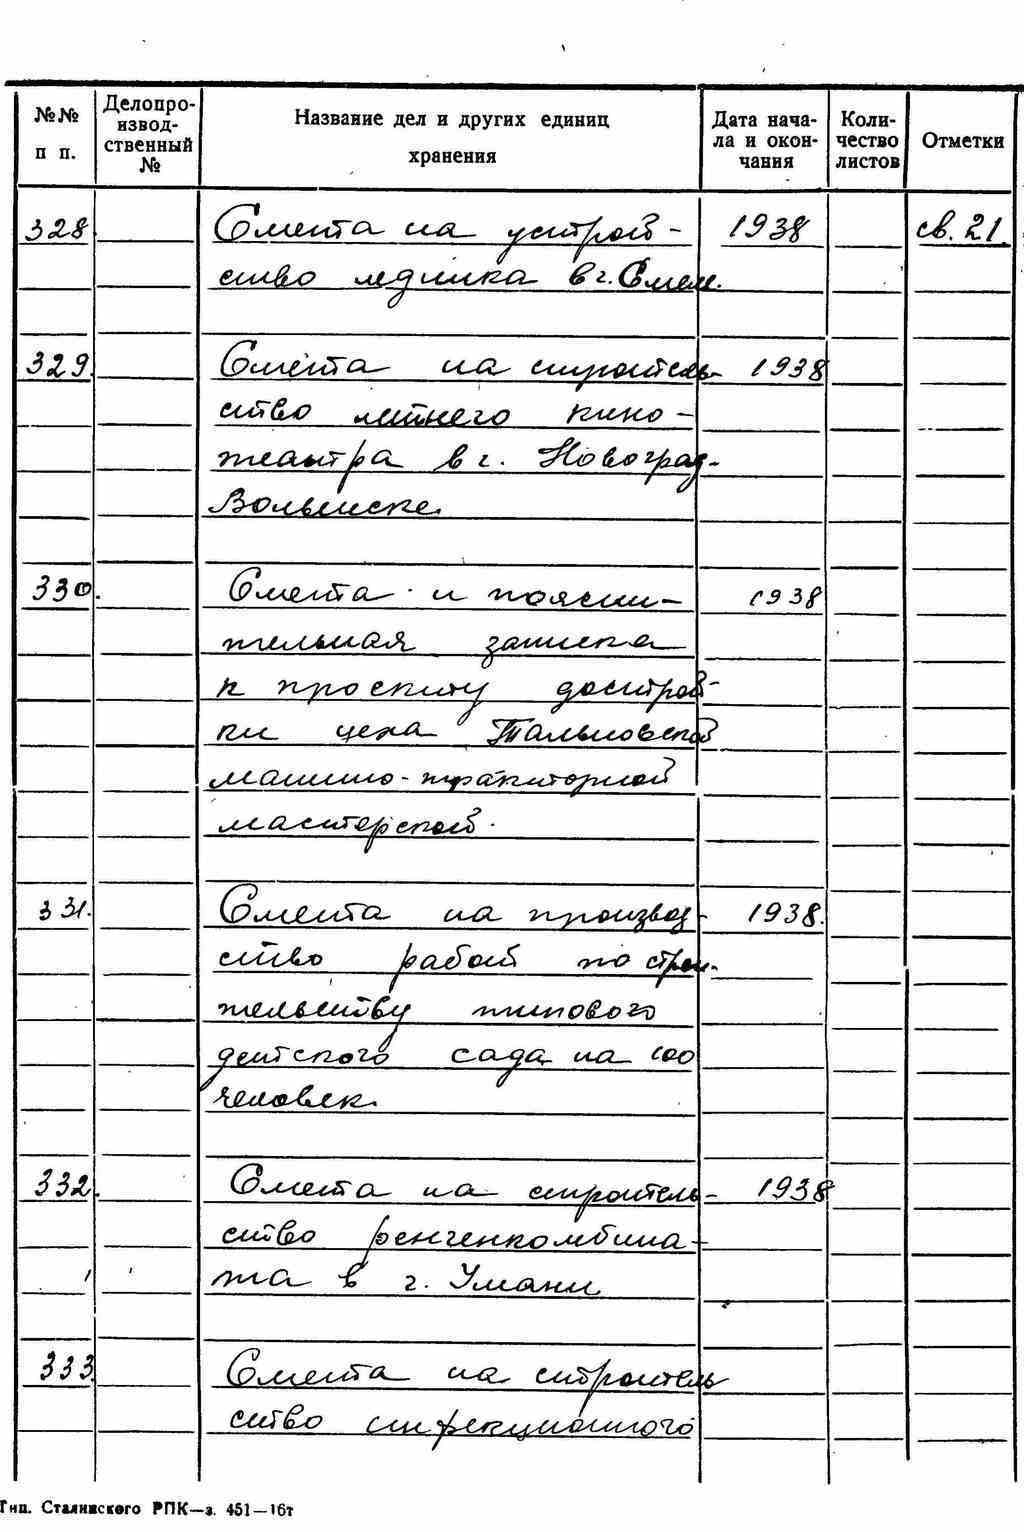 №№
п п.
Делопро-
извод-
ственный
№
Название дел и других единиц
хранения
Дата нача-
ла и окон-
чания
Коли-
чество
листов
Отметки
328 Смета на устрой- 1938 св. 21.
ство ледника в г. Смеле.
329. Смета на строитель- 1938
ство летнего кино-
театра в г. Новоград-
Волынске.
330. Смета и поясни- 1938
тельная записка
к проекту достро-
ки цеха Тальновской
машино-тракторной
мастерской.
331. Смета на производ- 1938.
ство работ по строи-
тельству типового
детского сада на 100
человек.
332. Смета на строитель- 1938
ство ренгенкомбина-
та в г. Умани
333. Смета на строитель
ство инфекционного
Тип. Сталинского РПК—з. 451—16т